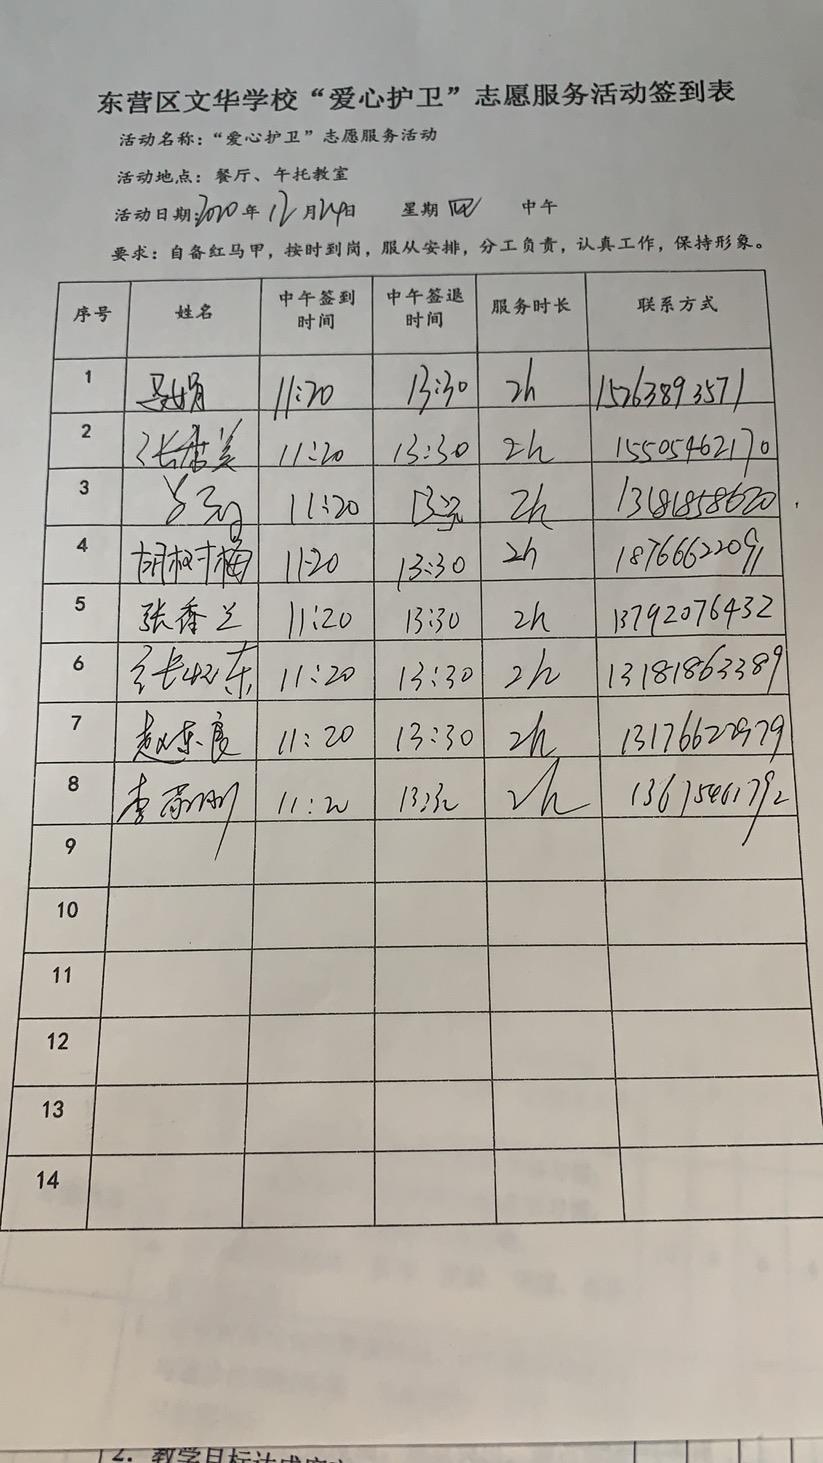 东营区文华学校“爱心护卫”志愿服务活动签到表
活动名称：“爱心护卫”志愿服务活动
活动地点：餐厅、午托教室
活动日期：2020年12月24日 星期四 中午
要求：自备红马甲，按时到岗，服从安排，分工负责，认真工作，保持形象。
序号 姓名 中午签到时间 中午签退时间 服务时长 联系方式
1 11:20 13:30 2h 15263893571
2 11:20 13:30 2h 15505462170
3 11:20 13:30 2h 13181858620
4 胡树梅 11:20 13:30 2h 18766622091
5 张香兰 11:20 13:30 2h 13792076432
6 11:20 13:30 2h 13181863389
7 11:20 13:30 2h
8 11:20 13:30 2h
9
10
11
12
13
14
2. 教学目标达成度